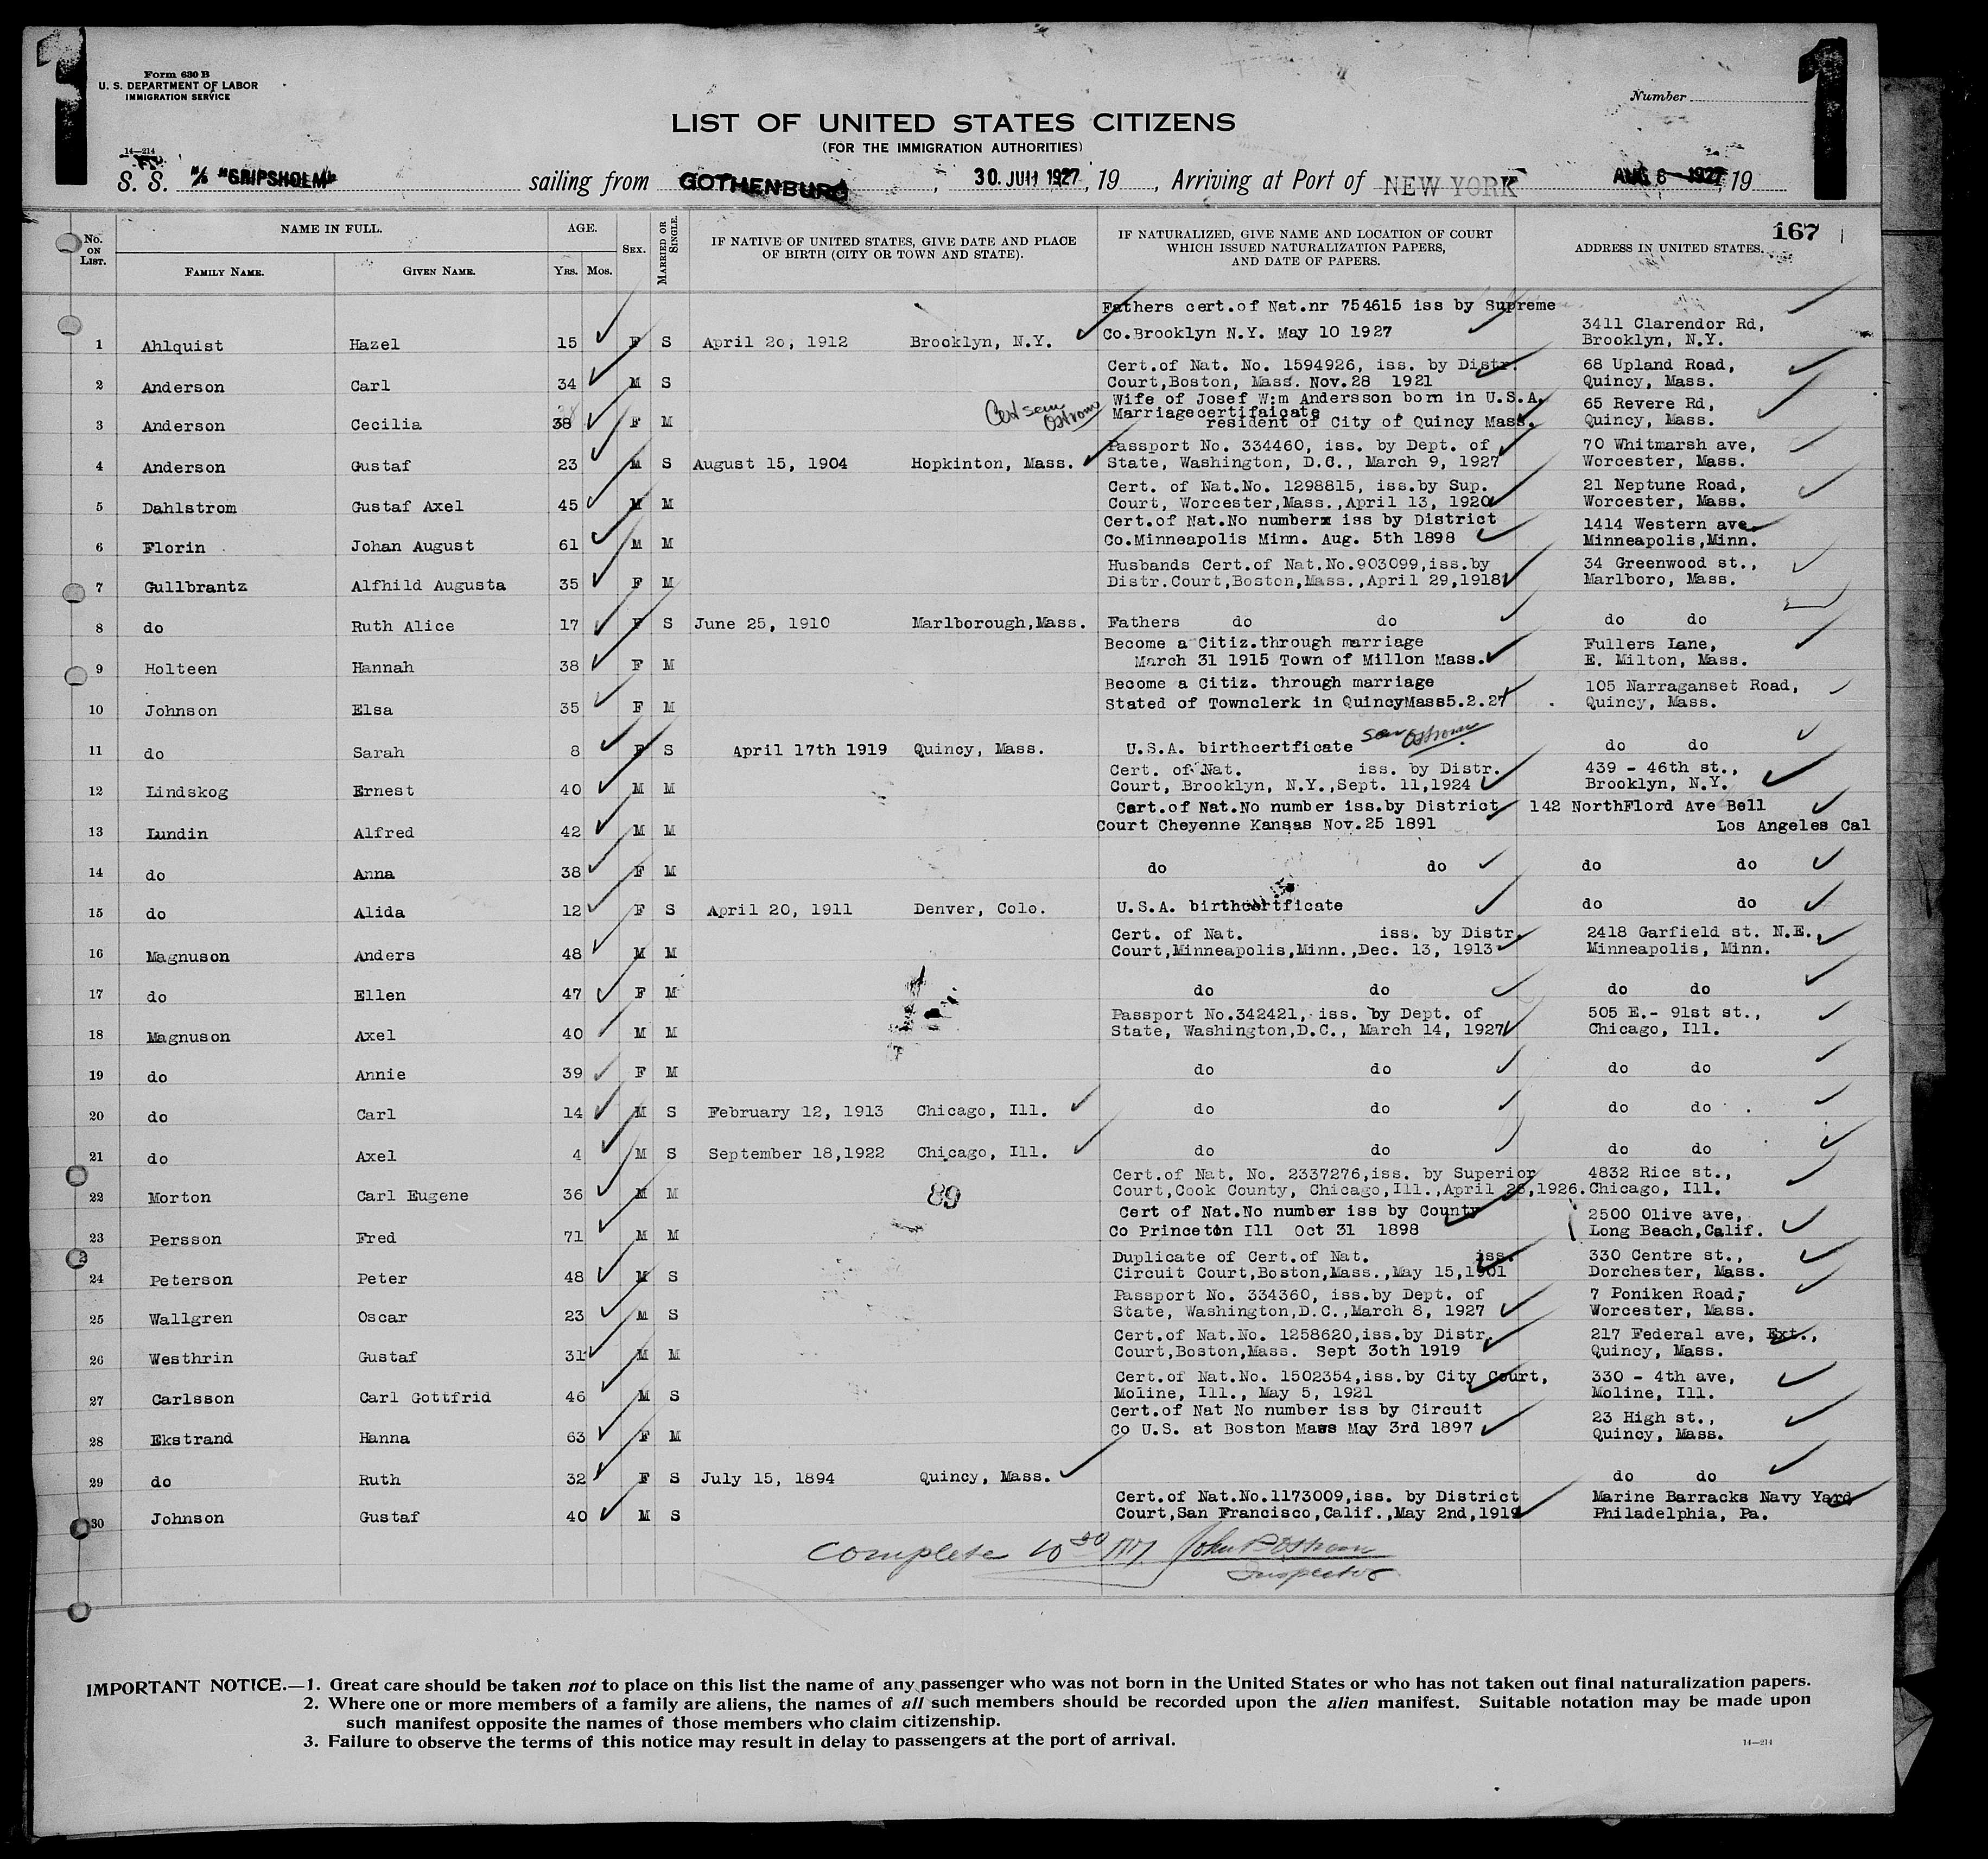 Form 630 B
U. S. DEPARTMENT OF LABOR
IMMIGRATION SERVICE
Number
1
LIST OF UNITED STATES CITIZENS
(FOR THE IMMIGRATION AUTHORITIES)
14—214
S. S. M/S "GRIPSHOLM" sailing from GOTHENBURG, 30. JULI 1927, 19 , Arriving at Port of NEW YORK AUG 6 - 1927, 19
167
No. ON LIST. NAME IN FULL. FAMILY NAME. GIVEN NAME. AGE. YRS. MOS. SEX. MARRIED OR SINGLE. IF NATIVE OF UNITED STATES, GIVE DATE AND PLACE OF BIRTH (CITY OR TOWN AND STATE). IF NATURALIZED, GIVE NAME AND LOCATION OF COURT WHICH ISSUED NATURALIZATION PAPERS, AND DATE OF PAPERS. ADDRESS IN UNITED STATES.
1 Ahlquist Hazel 15 F S April 2o, 1912 Brooklyn, N.Y. Fathers cert.of Nat.nr 754615 iss by Supreme Co.Brooklyn N.Y. May 10 1927 3411 Clarendor Rd, Brooklyn, N.Y.
2 Anderson Carl 34 M S Cert.of Nat. No. 1594926, iss. by Distr. Court,Boston, Mass. Nov.28 1921 68 Upland Road, Quincy, Mass.
3 Anderson Cecilia 38 F M Cert seen Ostrom Wife of Josef W:m Andersson born in U.S.A. Marriagecertifaicate resident of City of Quincy Mass. 65 Revere Rd, Quincy, Mass.
4 Anderson Gustaf 23 M S August 15, 1904 Hopkinton, Mass. Passport No. 334460, iss. by Dept. of State, Washington, D.C., March 9, 1927 70 Whitmarsh ave, Worcester, Mass.
5 Dahlstrom Gustaf Axel 45 M M Cert. of Nat.No. 1298815, iss.by Sup. Court, Worcester,Mass.,April 13, 1920 21 Neptune Road, Worcester, Mass.
6 Florin Johan August 61 M M Cert.of Nat.No numberx iss by District Co.Minneapolis Minn. Aug. 5th 1898 1414 Western ave. Minneapolis,Minn.
7 Gullbrantz Alfhild Augusta 35 F M Husbands Cert.of Nat.No.903099,iss.by Distr.Court,Boston,Mass.,April 29,1918 34 Greenwood st., Marlboro, Mass.
8 do Ruth Alice 17 F S June 25, 1910 Marlborough,Mass. Fathers do do do do
9 Holteen Hannah 38 F M Become a Citiz.through marriage March 31 1915 Town of Millon Mass. Fullers Lane, E. Milton, Mass.
10 Johnson Elsa 35 F M Become a Citiz. through marriage Stated of Townclerk in QuincyMass5.2.27 105 Narraganset Road, Quincy, Mass.
11 do Sarah 8 F S April 17th 1919 Quincy, Mass. U.S.A. birthcertficate seen Ostrom do do
12 Lindskog Ernest 40 M M Cert. of Nat. iss. by Distr. Court, Brooklyn, N.Y.,Sept. 11,1924 439 - 46th st., Brooklyn, N.Y.
13 Lundin Alfred 42 M M Cart.of Nat.No number iss.by District Court Cheyenne Kansas Nov.25 1891 142 NorthFlord Ave Bell Los Angeles Cal
14 do Anna 38 F M do do do do
15 do Alida 12 F S April 20, 1911 Denver, Colo. U.S.A. birthcertficate do do
16 Magnuson Anders 48 M M Cert. of Nat. iss. by Distr. Court,Minneapolis,Minn.,Dec. 13, 1913 2418 Garfield st. N.E., Minneapolis, Minn.
17 do Ellen 47 F M do do do do
18 Magnuson Axel 40 M M Passport No.342421, iss. by Dept. of State, Washington,D.C., March 14, 1927 505 E.- 91st st., Chicago, Ill.
19 do Annie 39 F M do do do do
20 do Carl 14 M S February 12, 1913 Chicago, Ill. do do do do
21 do Axel 4 M S September 18,1922 Chicago, Ill. do do do do
22 Morton Carl Eugene 36 M M 89 Cert.of Nat. No. 2337276,iss. by Superior Court,Cook County, Chicago,Ill.,April 28,1926. 4832 Rice st., Chicago, Ill.
23 Persson Fred 71 M M Cert of Nat.No number iss by County Co Princeton Ill Oct 31 1898 2500 Olive ave, Long Beach,Calif.
24 Peterson Peter 48 M S Duplicate of Cert.of Nat. iss. Circuit Court,Boston,Mass.,May 15,1901 330 Centre st., Dorchester, Mass.
25 Wallgren Oscar 23 M S Passport No. 334360, iss.by Dept. of State, Washington,D.C.,March 8, 1927 7 Poniken Road, Worcester, Mass.
26 Westhrin Gustaf 31 M M Cert.of Nat.No. 1258620,iss.by Distr. Court,Boston,Mass. Sept 3oth 1919 217 Federal ave, Ext., Quincy, Mass.
27 Carlsson Carl Gottfrid 46 M S Cert.of Nat.No. 1502354,iss.by City Court, Moline, Ill., May 5, 1921 330 - 4th ave, Moline, Ill.
28 Ekstrand Hanna 63 F M Cert.of Nat No number iss by Circuit Co U.S. at Boston Mass May 3rd 1897 23 High st., Quincy, Mass.
29 do Ruth 32 F S July 15, 1894 Quincy, Mass. do do
30 Johnson Gustaf 40 M S Cert.of Nat.No.1173009,iss. by District Court,San Francisco,Calif.,May 2nd,1919 Marine Barracks Navy Yard Philadelphia, Pa.
Complete 10 30 AM John P Ostrom
Inspector
IMPORTANT NOTICE.—1. Great care should be taken not to place on this list the name of any passenger who was not born in the United States or who has not taken out final naturalization papers.
2. Where one or more members of a family are aliens, the names of all such members should be recorded upon the alien manifest. Suitable notation may be made upon
such manifest opposite the names of those members who claim citizenship.
3. Failure to observe the terms of this notice may result in delay to passengers at the port of arrival.
14—214